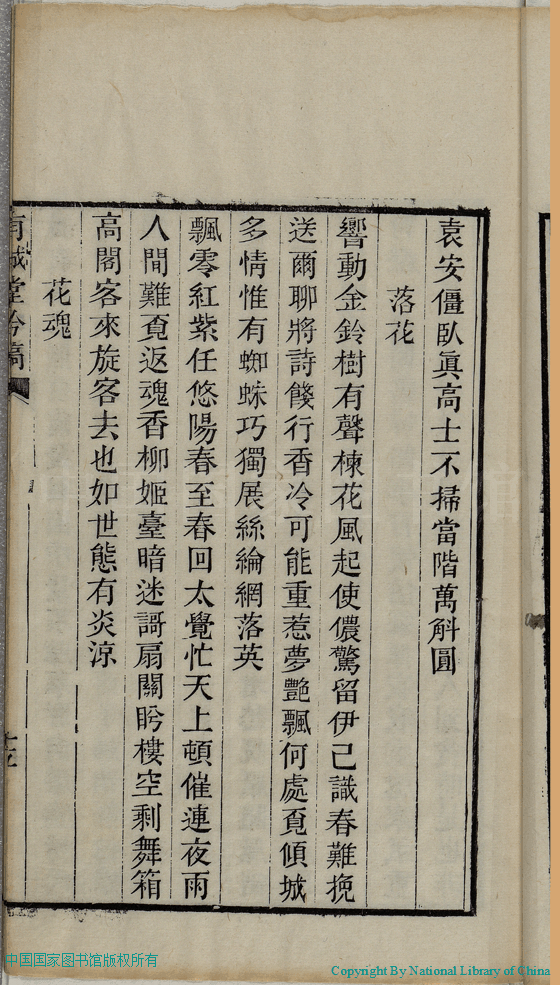 袁安僵臥眞高士不掃當階萬斛圓
落花
響動金鈴樹有聲楝花風起使儂驚留伊已識春難挽
送爾聊將詩餞行香冷可能重惹夢艷飄何處覔傾城
多情惟有蜘蛛巧獨展絲綸網落英
飄零紅紫任悠陽春至春回太覺忙天上頓催連夜雨
人間難覔返魂香柳姬臺暗迷謌扇關盻樓空剩舞箱
高閣客來旋客去也如世態有炎涼
花魂
堂吟稿
中国国家图书馆版权所有
Copyright By National Library of China